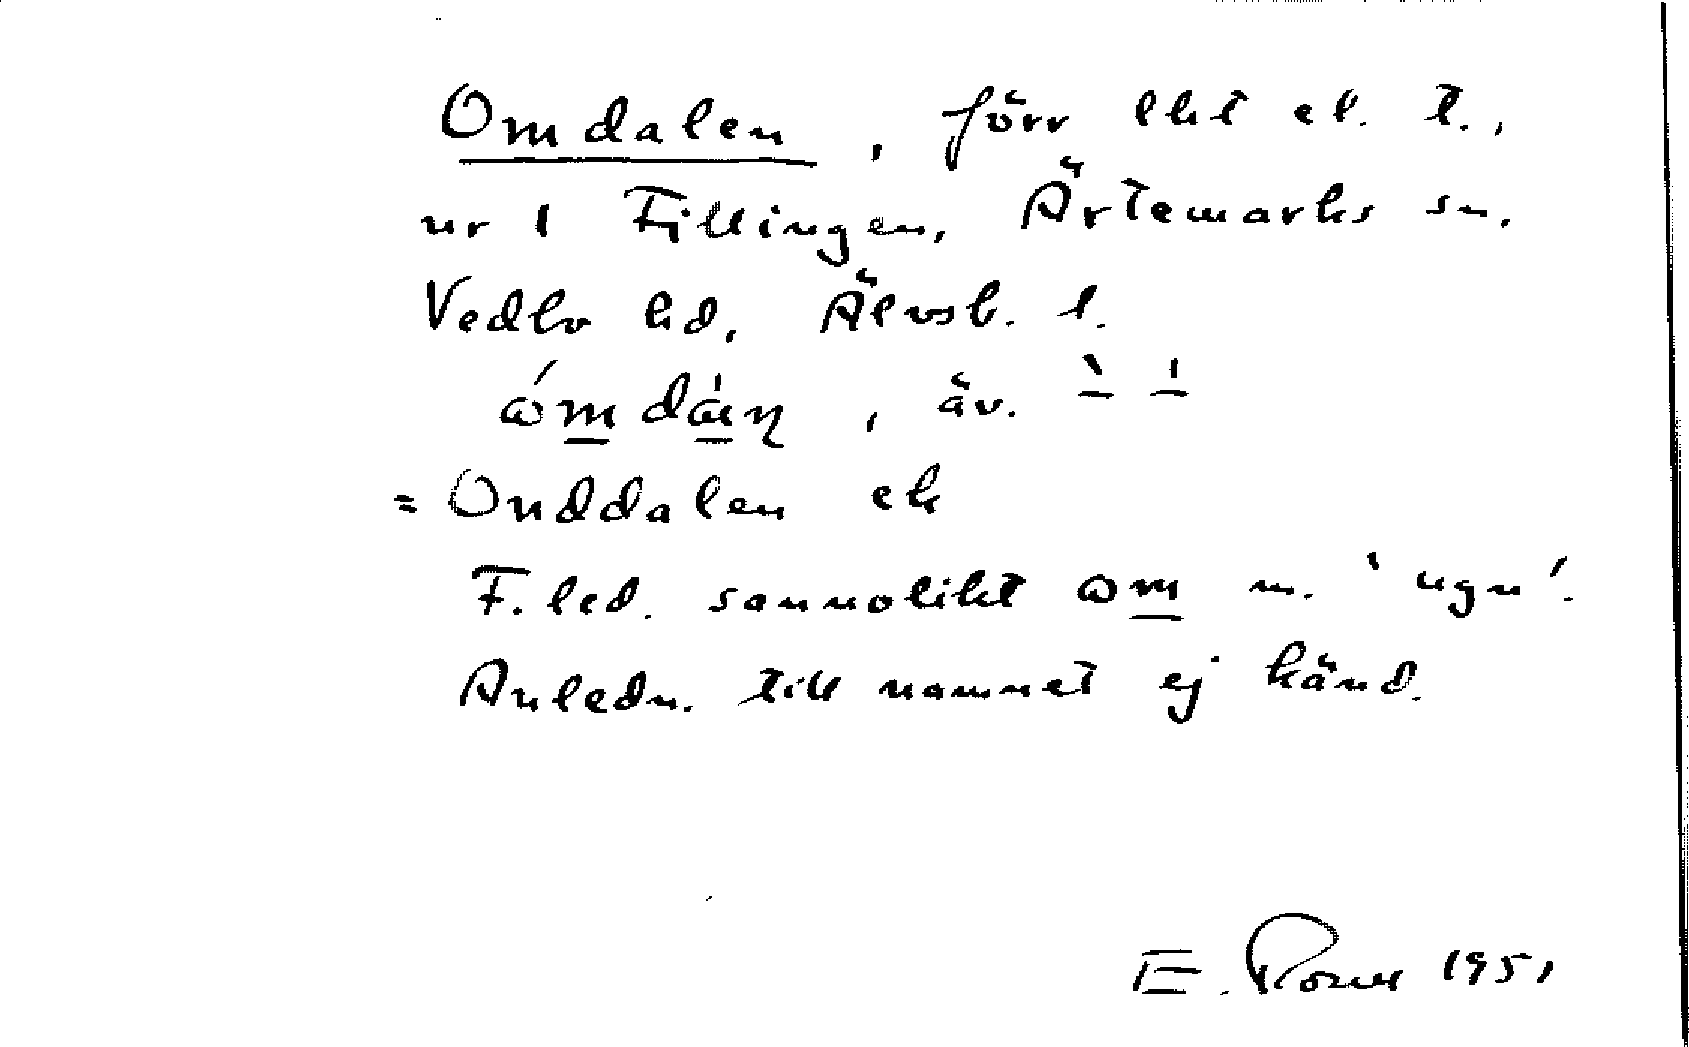 Omdalen, förr lht el. t.,
nr 1 Fillingen, Ärtemarks sn.
Vedbo hd, Älvsb. l.
, äv.
= Onddalen ek
F. led. sannolikt ɷm m. 'ugn'.
Anledn. till namnet ej känd.
E. 1951